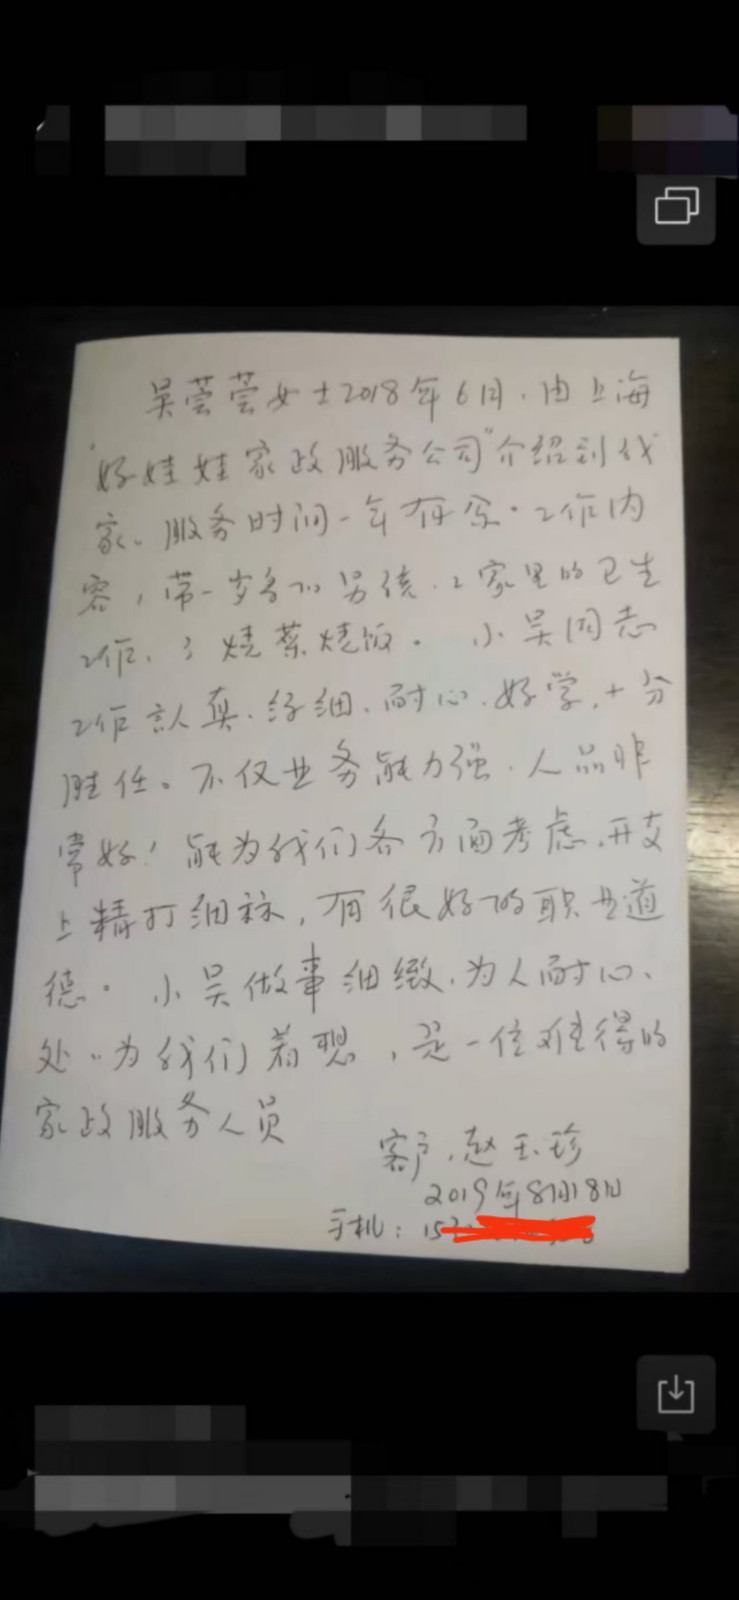 吴芸芸女士2018年6月.由上海
"好娃娃家政服务公司"介绍到我
家。服务时间一年有余.工作内
容,带一岁多的男孩.2家里的卫生
工作.3烧菜烧饭。小吴同志
工作認真.仔细.耐心.好学,十分
胜任。不仅业务能力强.人品非
常好!能为我们各方面考虑.开支
上精打细秣,有很好的职业道
德.小吴做事细緻.为人耐心、
处处为我们着想,是一位难得的
家政服务人员
客户.赵玉珍
2019年8月18日
手机:15